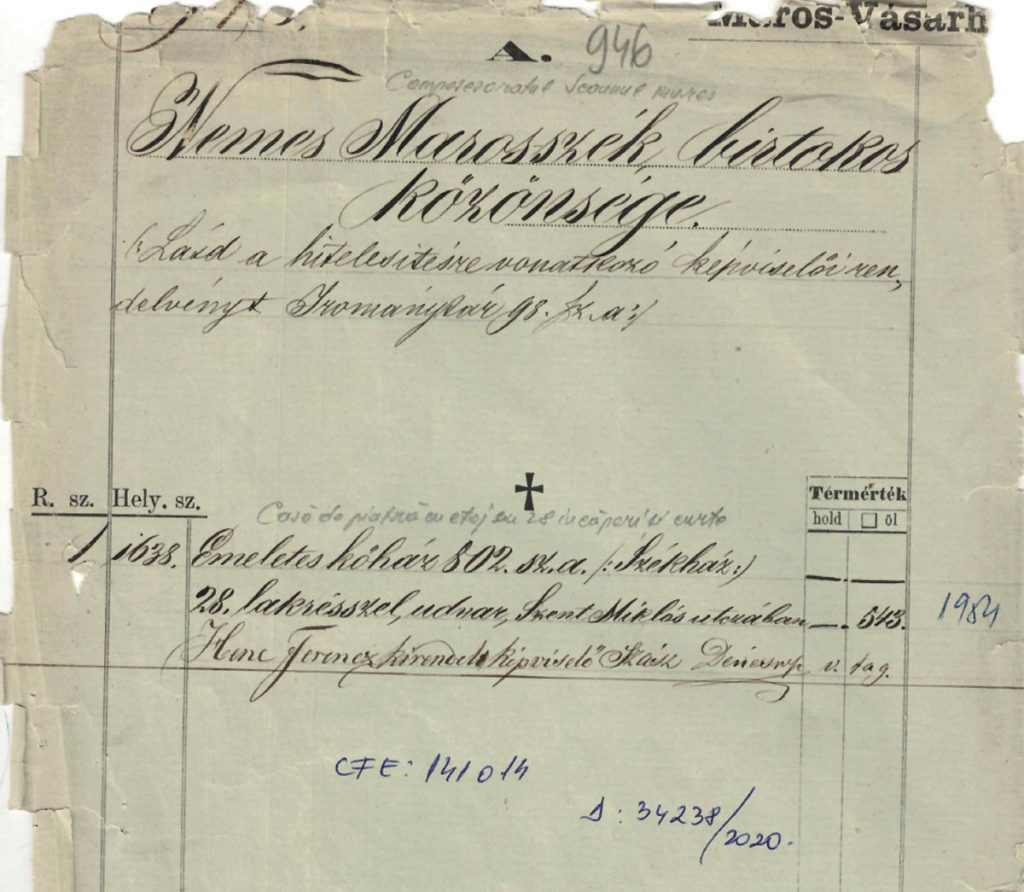 Maros-Vásárh
A. 946
Composesoratul Scaunul Mureș
Nemes Marosszék, birtokos
közönsége.
(: Lásd a hitelesitésre vonatkozó képviselői ren„
delvényt Irománytár 98. sz. a :)
R. sz. Hely. sz. Térmérték
hold □ öl
Casă de piatră cu etaj cu 28 încăperi și curte
1 1638. Emeletes kőház 802. sz. a. (: Székház :)
28. lakrésszel, udvar, Szent Miklós utczában —. 543. 1984
Ferencz kirendelt képviselő Szász v. tag.
CFE: 141014
D: 34238/2020.